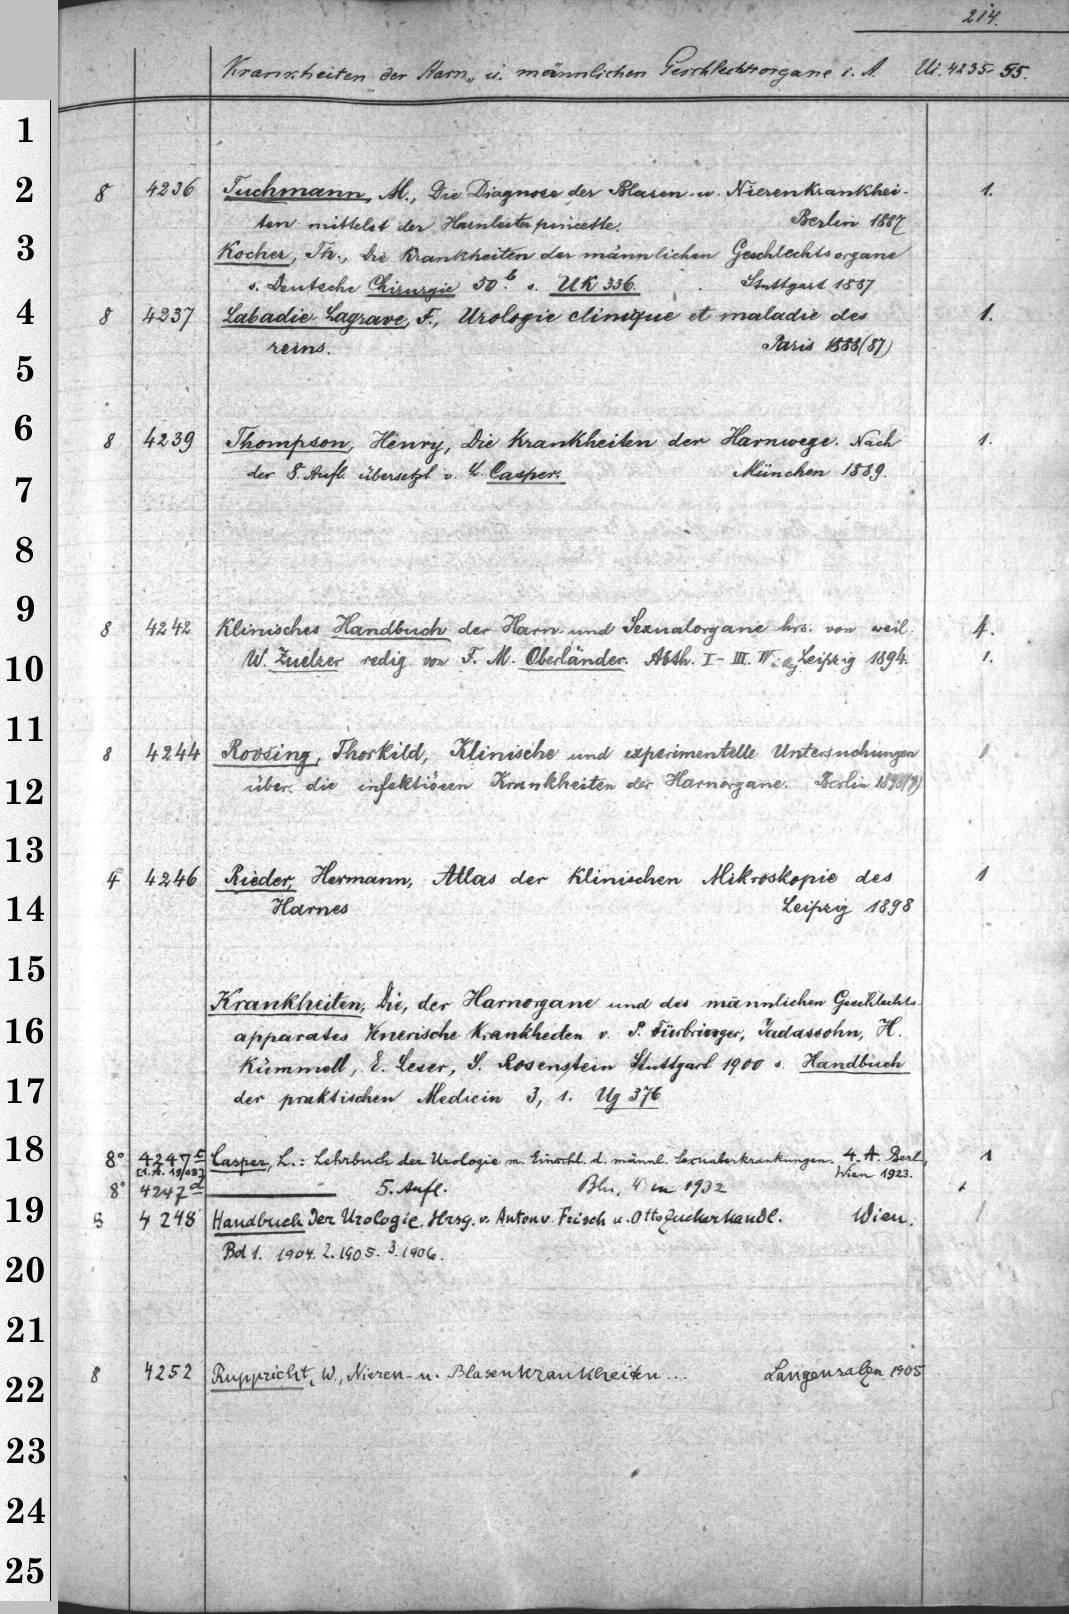 214.
Krankheiten der Harn- u. männlichen Geschlechtsorgane i. A. Ui. 4235-55.
1
2 8 4236 Tuchmann, M., Die Diagnose der Blasen- u. Nierenkrankhei- 1.
ten mittelst der Harnleiterpincette. Berlin 1887
3 Kocher, Th., Die Krankheiten der männlichen Geschlechtsorgane
s. Deutsche Chirurgie 50.b s. UK 336. Stuttgart 1887
4 8 4237 Labadie-Lagrave, F., Urologie clinique et maladie des 1.
reins. Paris 1888(87)
5
6 8 4239 Thompson, Henry, Die Krankheiten der Harnwege. Nach 1.
7 der 8. Aufl. übersetzt v. L. Casper. München 1889.
8
9 8 4242 Klinisches Handbuch der Harn- und Sexualorgane hrs. von weil. 4.
10 W. Zuelzer redig. von F. M. Oberländer. Abth. I-III. IV Leipzig 1894. 1.
11 8 4244 Rovsing, Thorkild, Klinische und experimentelle Untersuchungen 1
12 über die infektiösen Krankheiten der Harnorgane. Berlin
13 4° 4246 Rieder, Hermann, Atlas der klinischen Mikroskopie des 1
14 Harnes Leipzig 1898
15
Krankheiten, Die, der Harnorgane und des männlichen Geschlechts-
16 apparates Venerische Krankheiten v. P. Fürbringer, Jadassohn, H.
Kümmell, E. Leser, S. Rosenstein Stuttgart 1900 s. Handbuch
17 der praktischen Medicin 3, 1. Ug 376
18 8° 4247c Casper, L.: Lehrbuch der Urologie m. Einschl. d. männl. Sexualerkrankungen. 4. A. Berl, 1
[1.A. 1903] Wien 1923.
8° 4247d 5. Aufl. Bln, Wien 1932
19 8 4248 Handbuch der Urologie, Hrsg. v. Anton v. Frisch u. Otto Zuckerkandl. Wien. 1
Bd 1. 1904. 2. 1905. 3. 1906.
20
21
22 8 4252 Ruppricht, W., Nieren- u. Blasenkrankheiten... Langensalza 1905
23
24
25